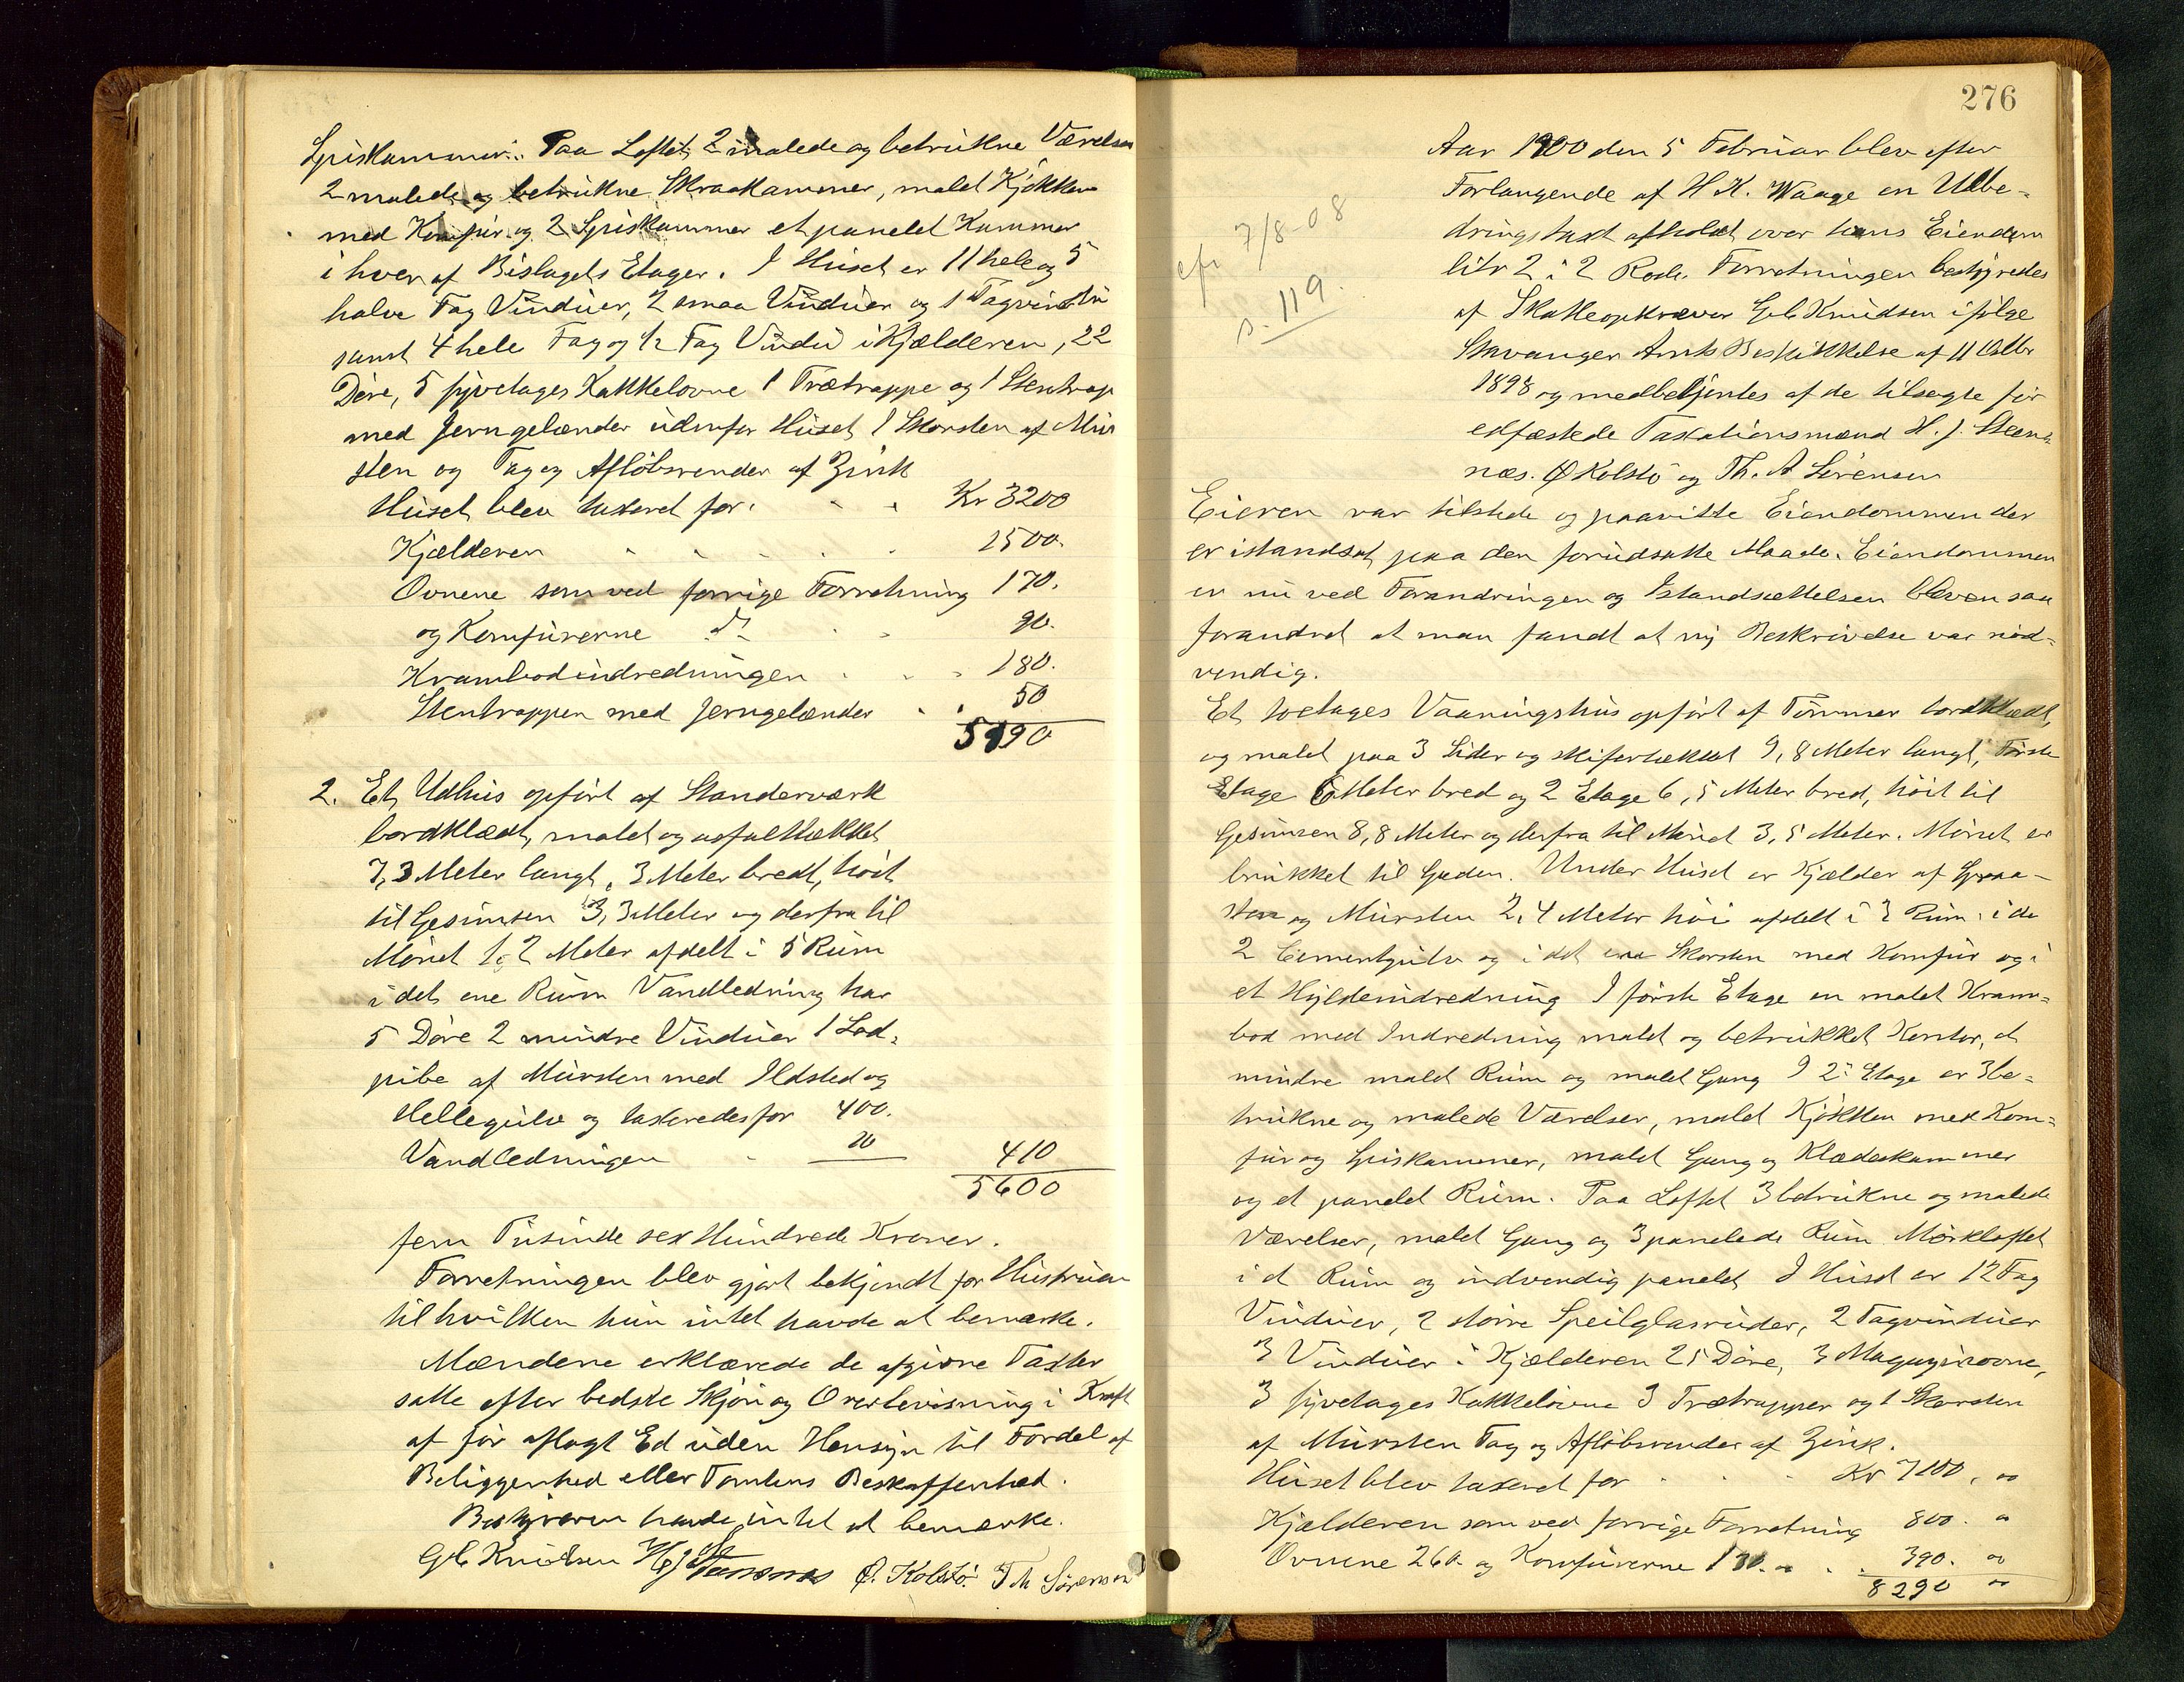 Spiskammer. Paa Loftet 2 malede og betrukne Værelser
2 malede og betrukne Skraakammer, malet Kjøkken
med Komfur og 2 Spiskammer et panelet Kammer
i hver af Bislagets Etager. I Huset er 11 hele og 5
halve Fag Vinduer, 2 smaa Vinduer og 1 Tagvindu
samt 4 hele Fag og 1/2 Fag Vindu i Kjælderen, 22
Døre, 5 fyretages Kakkelovne 1 Trætrappe og 1 Stentrap
med Jerngelænder udenfor Huset 1 Skorsten af Mur
sten og Tag og Afløbsrender af Zink
Huset blev taxeret for Kr 3200
Kjælderen 1500.
Ovnene som ved forrige Forretning 170.
og Komfurerne do 90.
Krambodindredningen 180.
Stentrappen med Jerngelænder 50
5190
2. Et Udhus opført af Standerværk
bordklædt, malet og asfalttækket
7,3 Meter langt, 3 Meter bredt, høit
til Gesimsen 3,3 Meter og derfra til
Mønet 1,2 Meter afdelt i 5 Rum
i det ene Rum Vandledning har
5 Døre 2 mindre Vinduer 1 Lod-
pibe af Mursten med Ildsted og
Hellegulv og taxeredes for 400.
Vandledningen 10 410
5600
fem Tusinde sex Hundrede Kroner.
Forretningen blev gjort bekjendt for Hustruen
til hvilken hun intet havde at bemærke.
Mændene erklærede de afgivne Taxter
satte efter bedste Skjøn og Overbevisning i Kraft
af før aflagt Ed uden Hensyn til Fordel af
Beliggenhed eller Tomtens Beskaffenhed.
Bestyreren havde intet at bemærke.
Gb Knudsen H J Steensnæs Ø. Kolstø. Th Sørensen
276
Aar 1900 den 5 Februar blev efter
Forlangende af H K. Waage en Udbe-
dringstaxt afholdt over hans Eiendom
litr 2 i 2 Rode. Forretningen bestyredes
af Skatteopkræver Gb Knudsen ifølge
Stavanger Amts Beskikkelse af 11 Oktbr
1898 og medbetjentes af de tilsagte før
edfæstede Taxationsmænd H. J. Steens-
næs. Ø Kolstø og Th. A Sørensen
cfr 7/8-08
s. 119.
Eieren var tilstede og paaviste Eiendommen der
er istandsat paa den forudsatte Maade. Eiendommen
er nu ved Forandringen og Istandsættelsen bleven saa
forandret at man fandt at ny Beskrivelse var nød-
vendig.
Et toetages Vaaningshus opført af Tømmer bordklædt,
og malet paa 3 Sider og skifertækket 9,8 Meter langt, Første
Etage 6 Meter bred og 2 Etage 6,5 Meter bred, høit til
Gesimsen 8,8 Meter og derfra til Mønet 3,5 Meter. Mønet er
brukket til Gaden. Under Huset er Kjælder af Graa-
sten og Mursten 2,4 Meter høi afdelt i 3 Rum i de
2 Cementgulv og i det ene Skorsten med Komfur og i
et Hyldeindredning I første Etage en malet Kram-
bod med Indredning malet og betrukket Kontor, et
mindre malet Rum og malet Gang I 2. Etage er 3 be-
trukne og malede Værelser, malet Kjøkken med Kom-
fur og Spiskammer, malet Gang og Klædeskammer
og et panelet Rum. Paa Loftet 3 betrukne og malede
Værelser, malet Gang og 3 panelede Rum Mørkloftet
i et Rum og indvendig panelet I Huset er 12 Fag
Vinduer, 2 større Speilglasruder, 2 Tagvinduer
3 Vinduer i Kjælderen 25 Døre, 3 Magazinovne,
3 fyretages Kakkelovne 3 Trætrapper og 1 Skorsten
af Mursten Tag og Afløbsrender af Zink.
Huset blev taxeret for Kr 7100, 00
Kjælderen som ved forrige Forretning 800. 00
Ovnene 260. og Komfurerne 130. 00 390. 00
8290 00